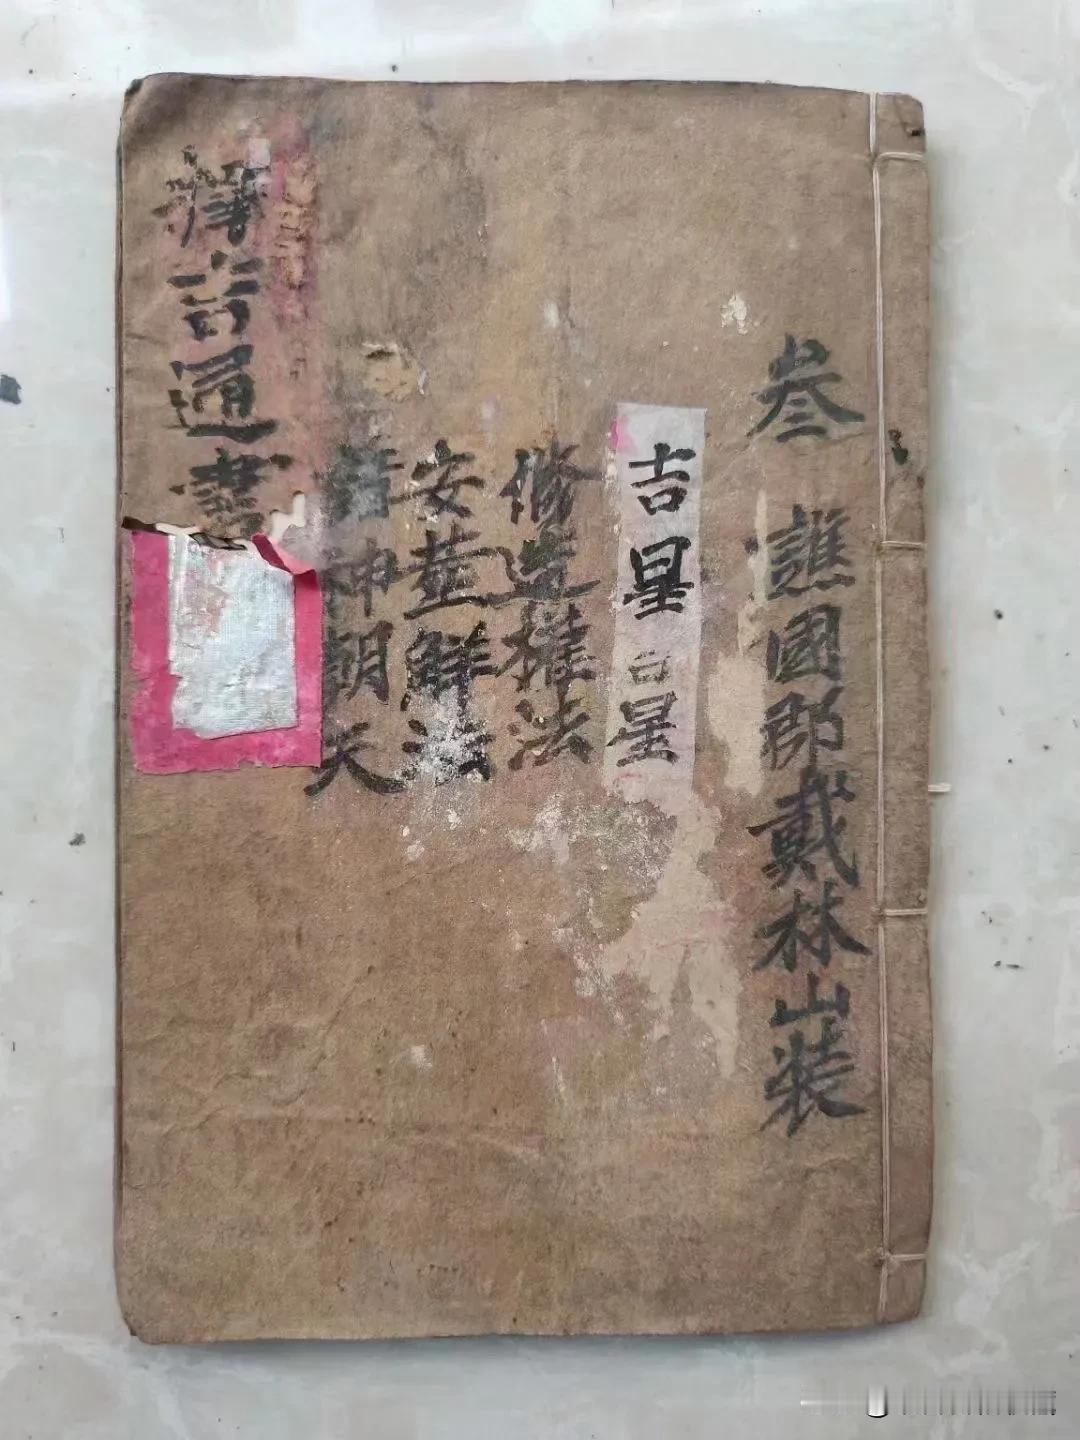 叁 譙國郡戴林山裝
吉星 吉星
修造權法
安塟解法
諸神朝天
擇吉通書